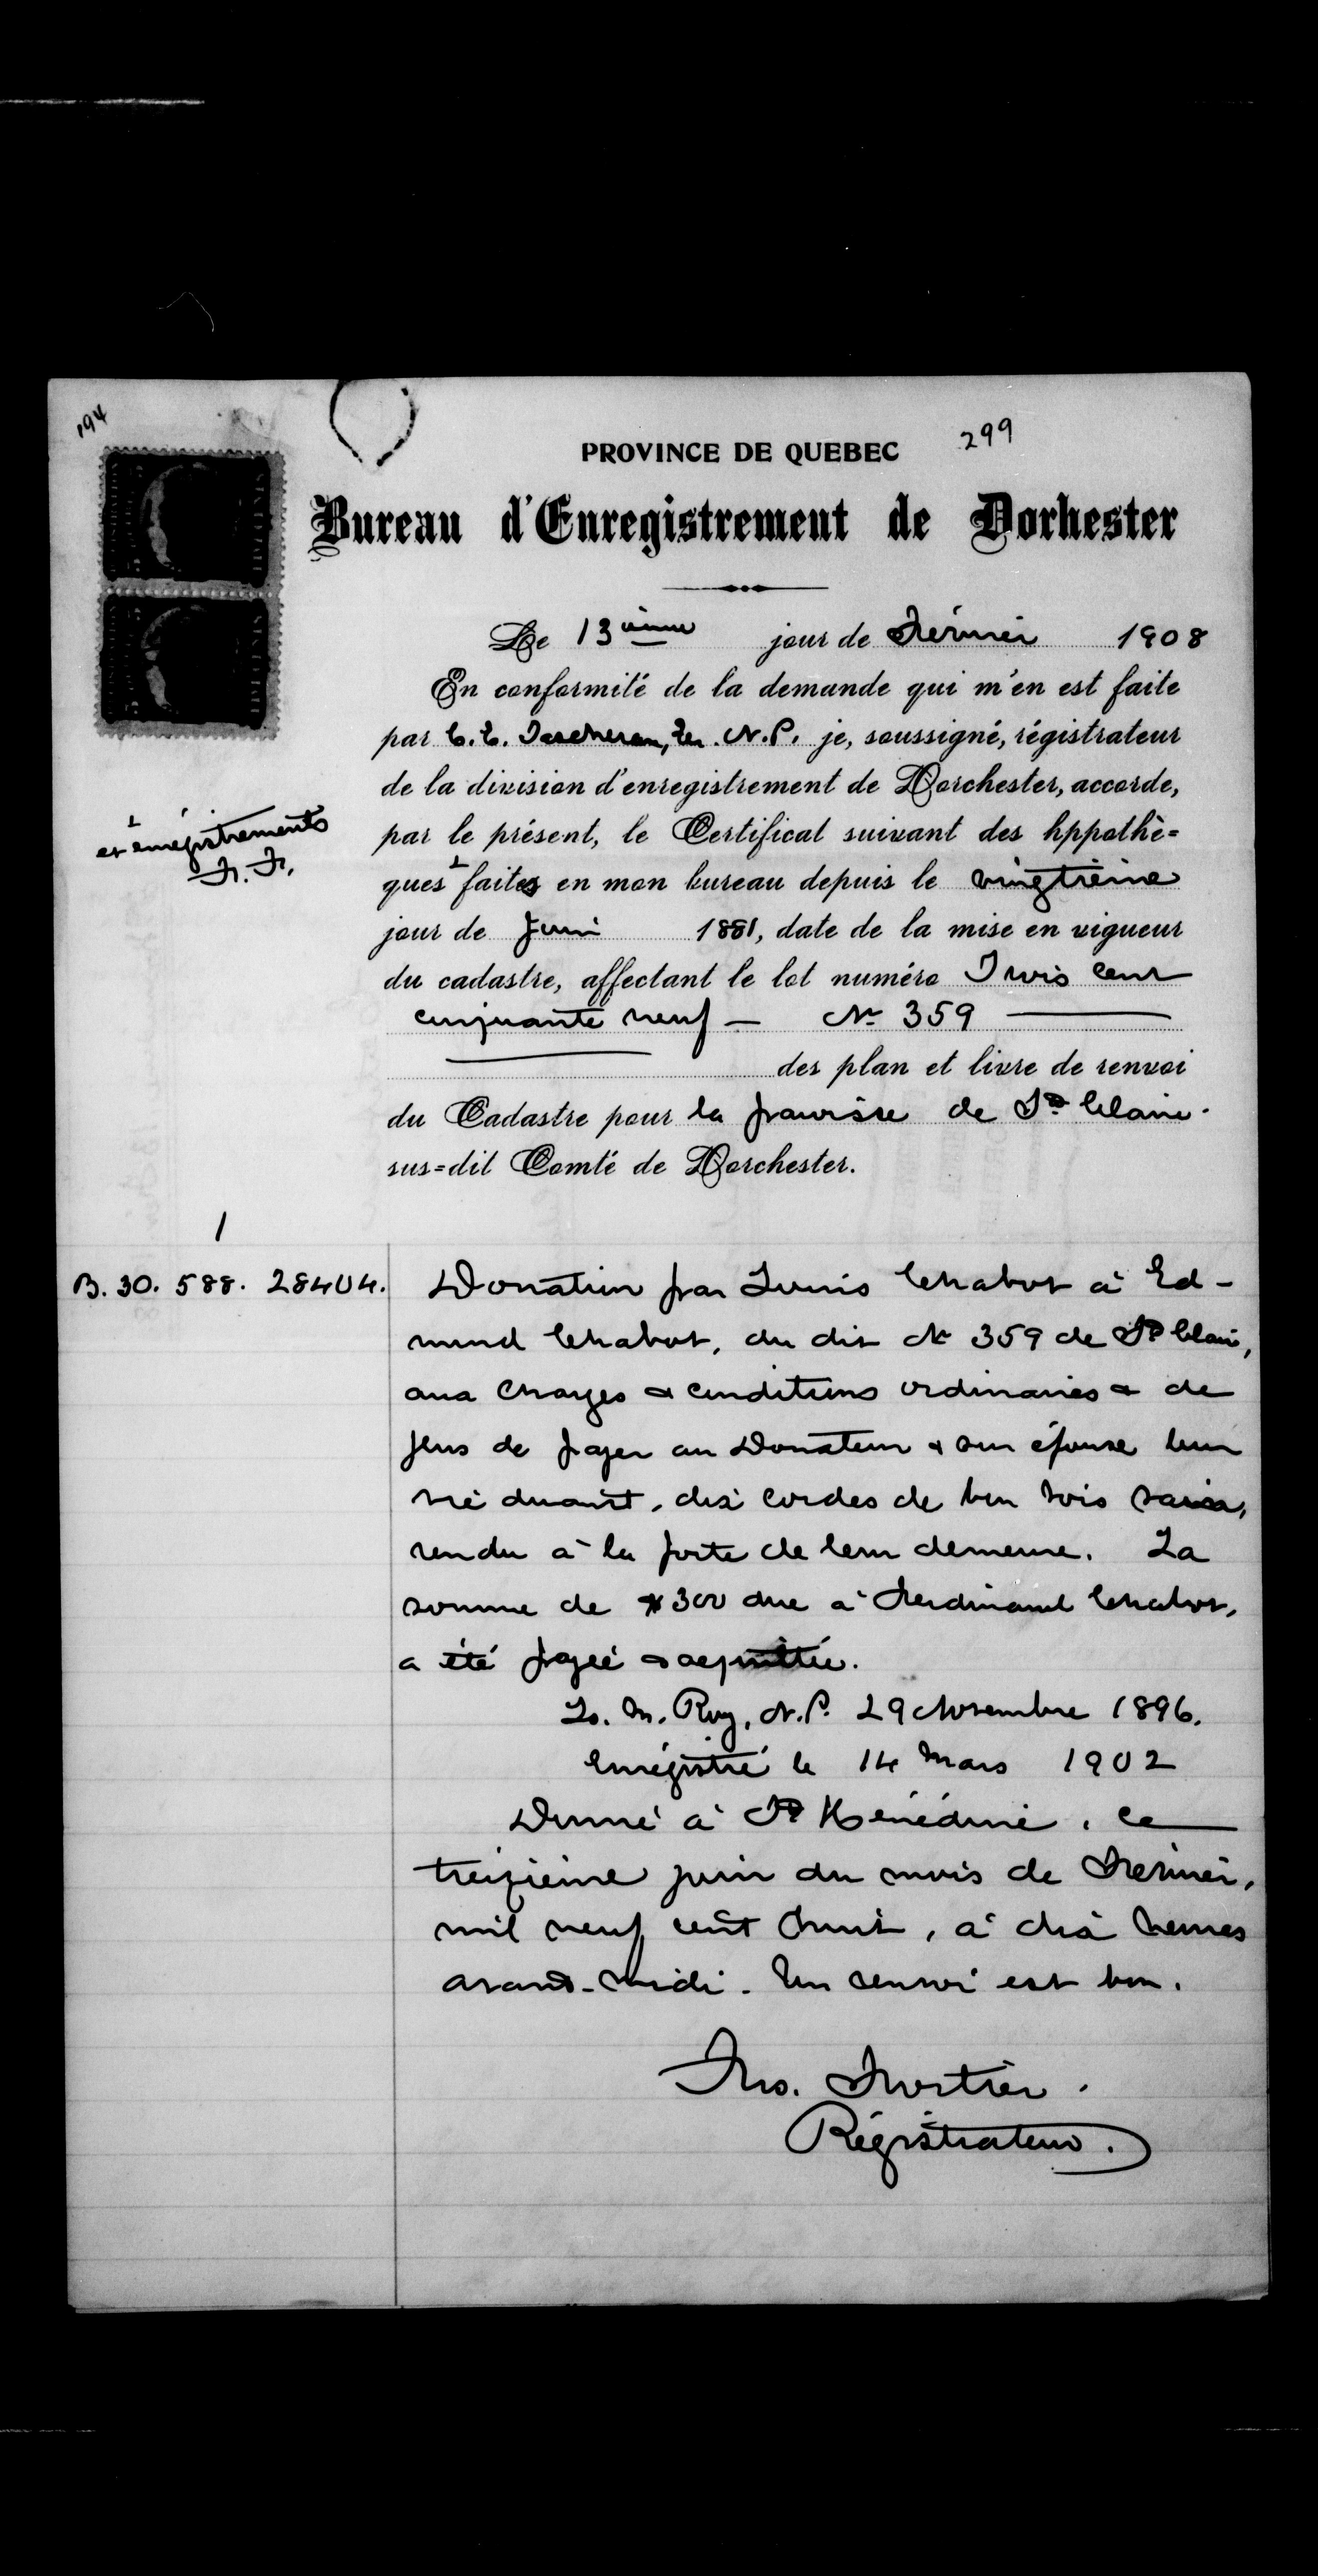 194
299
PROVINCE DE QUEBEC
Bureau d'Enregistrement de Dorhester
Le 13ième jour de Février 1908
En conformité de la demande qui m'en est faite
par C. E. Taschereau, Er. N.P. je, soussigné, régistrateur
de la division d'enregistrement de Dorchester, accorde,
par le présent, le Certificat suivant des hppothè=
1 et enrégistrements
F. F.
ques 1 faites en mon bureau depuis le vingtième
jour de Juin 1881, date de la mise en vigueur
du cadastre, affectant le lot numéro Trois cent
cinquante neuf — No 359
des plan et livre de renvoi
du Cadastre pour la paroisse de Ste Claire.
sus=dit Comté de Dorchester.
1
B. 30. 588. 28404. Donation par Louis Chabot à Ed-
mond Chabot, du dit No 359 de Ste Claire,
aux charges & conditions ordinaires & de
plus de payer au Donateur & son épouse leur
vie durant, dix cordes de bon bois
rendu à la porte de leur demeure. La
somme de $300 due à Ferdinand Chabot,
a été payée & acquittée.
Ls. M. Roy, N.P. 29 Novembre 1896.
Enrégistré le 14 Mars 1902
Donné à Ste Hénédine, ce
treizième jour du mois de Février,
mil neuf cent huit, à dix heures
avant-midi. Un renvoi est bon.
Frs. Fortier.
Régistrateur.